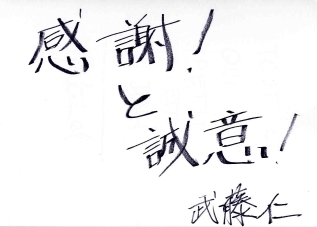 感謝!
と
誠意!
武藤仁